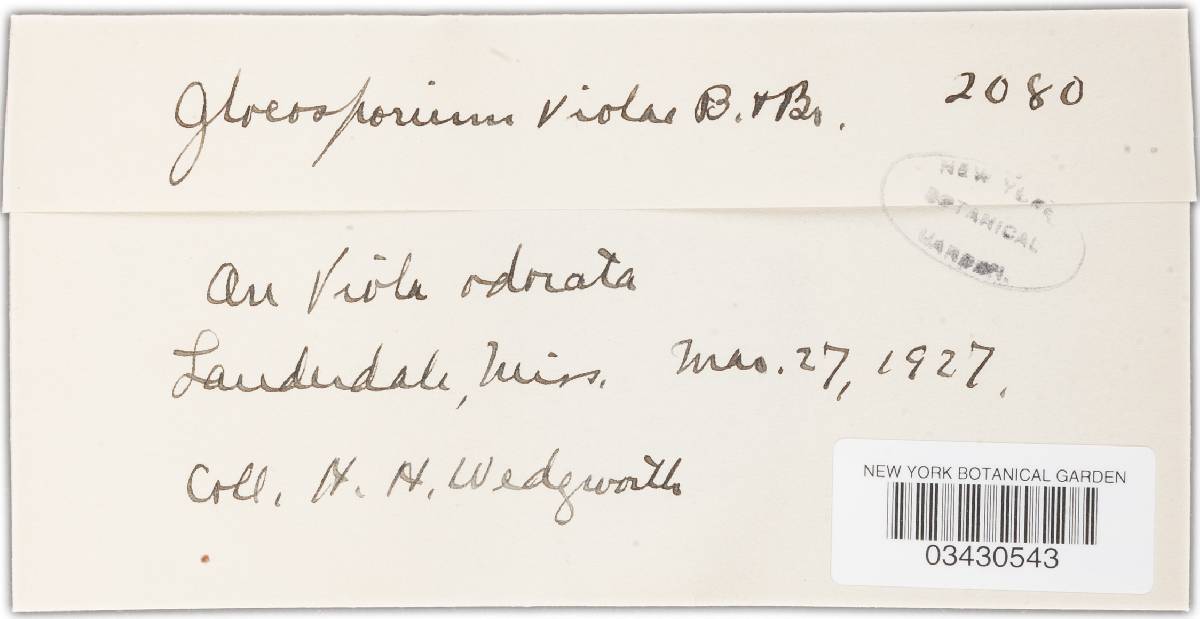 Gloeosporium Violae B. & Br. 2080
NEW YORK
BOTANICAL
GARDEN.
On Viola odorata
Lauderdale, Miss. Mar. 27, 1927.
Coll. H. H. Wedgworth
NEW YORK BOTANICAL GARDEN
03430543